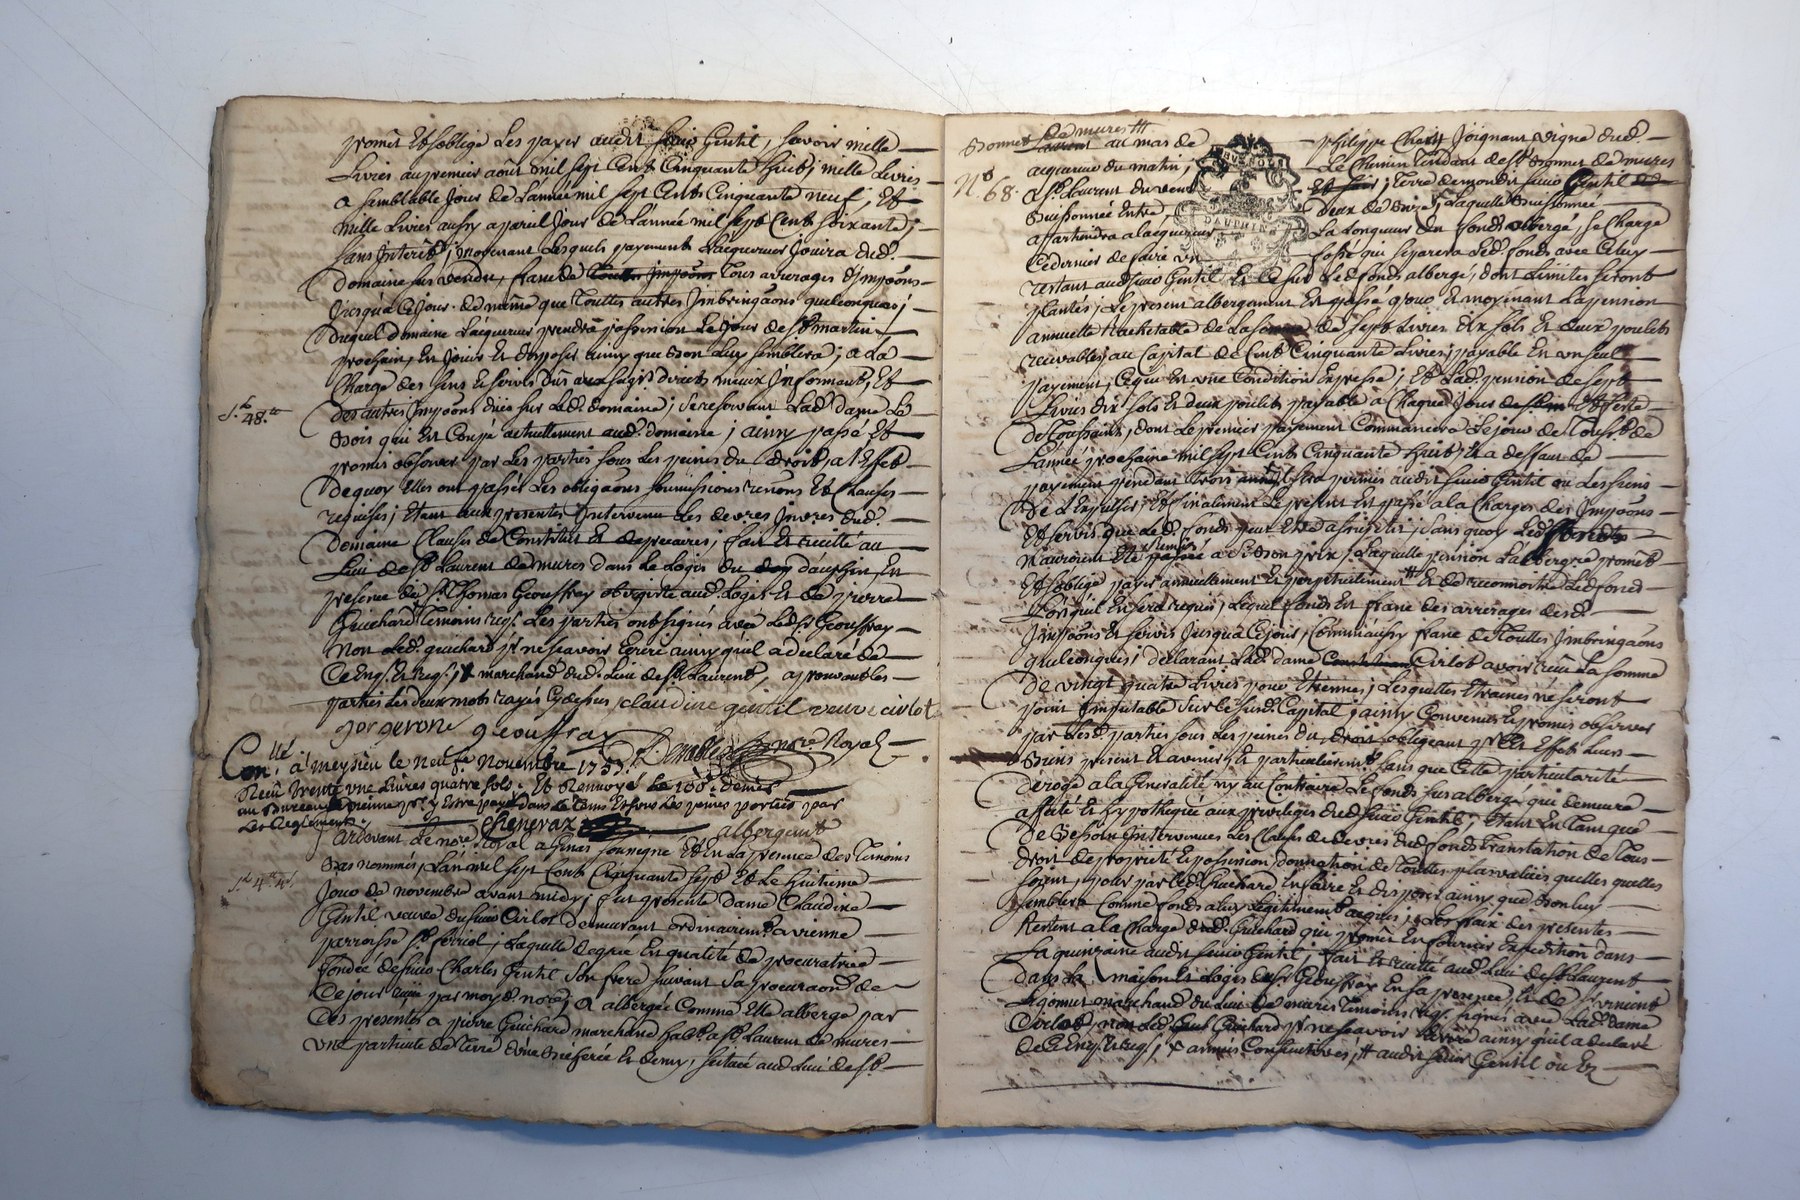 promet et soblige les payer audit sieur Gentil, savoir mille
Livres au premier aout mil sept cent Cinquante huit; mille Livres
a semblable Jour de Lannée mil sept Cents Cinquante neuf, Et
mille Livres aussy a pareil Jour de Lannée mil sept Cent soixante;
sans Interêt; moyenant Lesquels payement Lacquereur Jouira dud.
Domaine sus vendu, franc de tous arrerages d'Impoons
Jusqu'à Ce Jour de même que Touttes autres Imbringaons quelconques;
Duquel domaine Lacquereur prendra possession Le Jour de St martin
prochain, En Jouir Et disposer ainsy que Bon Luy semblera; a La
Charge des sens Et servis Dûs aux seigrs Directs mieux Informant, Et
Des autres Impoons düës sur Led. domaine; se reservant Lad. Dame Le
S. L. 48.
Bois qui Est Coupé actuellement aud. domaine; ainsy passé Et
promis observer par Les parties sous Les peines du Droit, a l'Effet
De quoy Elles ont passées Les obligaons soumissions renons Et Clauses
requises; Etant aux presentes Intervenu Les devres Inv.res dud.
Domaine Clauses de Constitut Et de precaires; fait Et recitté au
Lieu de St Laurent de mures dans Le Logis du dauphin En
presence du Sr Thomas Geouffray aubergiste aud. Logis Et de pierre
Guichard Temoins req. Les parties ont signés avec Led. Sr Geouffray
Non Led. guichard pr ne scavoir Ecrire ainsy qu'il a declaré de
Ce Enq. Et req. marchand dud. Lieu de St Laurent, aprouvant les
parties Les deux mots rayés Cy dessus claudine gentil veuve cirlot
gorgeron geouffray nore Royal
Con.llé à meysieu le neuf novembre 1757.
Reçu Trente une Livres quatre sols. Et Renvoyé Le 100e denier
au Bureau de vienne pr y Estre payé dans le tems Et sous Les peines portées par
Les Reglements. Chenevaz
albergement
Pardevant Le nore Royal a soussigné Et En La presence des Temoins
Bas nommés, L'an mil sept Cent Cinquante sept Et Le huitieme
Jour de novembre avant midy; fut presente Dame Claudine
Gentil veuve du sieur Cirlot demeurant ordinairemt a vienne
parroisse St ferriol; Laquelle de gré En qualité de procuratrice
Fondée de sieur Charles Gentil son frere suivant sa procuraon de
Ce jour reçüe par moyd. nore; a albergée Comme Elle alberge par
Ces presentes a pierre Guichard marchand habt a St Laurent de mures
une particule de Terre d'une Bicherée Et demy, scituée aud. Lieu de St
Bonnet de mures au mas de
No 68.
acquereur du matin;
a St Laurent du vent
Buissonnée Entre
apartiendra a lacquereur
Ce dernier de faire un
philippe Joignant vigne dud.
Le Chemin Tendant de St Bonnet de mures
Terre de mondit sieur Gentil
Deux de bize; Laquelle Buissonnée
La Longueur du fond albergé, se Charge
fossé qui separera Led. fonds avec Celuy
restant aud. sieur Gentil Et Ce sur Led. fonds albergé, dont Limites seront
plantés; Le present albergement Est passé pour Et moyenant La pension
annuelle Rachetable de La somme de sept Livres dix sols Et deux poulets
recevables, au Capital de Cent Cinquante Livres, payable En un seul
payement, Ce qui Est une Condition Expresse; Et Lad. pension de sept
Livres dix sols Et deux poulets payable a Chaque Jour de feste
De Toussaints, dont Le premier payement Commencera Le jour de Touss.ts de
Lannée prochaine mil sept Cent Cinquante huit, Et a deffaut de
payement pendant Trois années sera permis audit sieur Gentil ou Les siens
De L'Expulser; Et finalement Le present Est passé a la Charge des Impoons
Et servis que Led. fonds peut Etre assujettis; sans quoy Led. fonds
N'auroient Eté remis a Si Bon prix; Laquelle pension L'albergere promet
Et soblige payer annuellement Et perpetuellement Et de reconnoitre Led. fond
Lorsquil En sera requis; Lequel fonds Est franc des arrerages desd.
Impoons Et servis Jusqu'a Ce jour, Comme aussy franc de Touttes Imbringaons
quelconques; declarant Lad. dame Cirlot avoir reçu La somme
De vingt quatre Livres pour Etrennes; Lesquelles Etrennes ne seront
point Imputable sur Le sud. Capital; ainsy Convenu Et promis observer
par Lesd. parties sous Les peines du droit obligeant pr Et Effet Leurs
Biens present Et avenir, Et particulieremt sans que Cette particularité
Deroge a la Generalité ny au Contraire Le fonds sus albergé qui demeure
affecté Et hypothequé aux privileges dud. sieur Gentil; Etant En Tant que
De Besoin Intervenues Les Clauses de devres dud. fonds Translation de Tous
Droit de proprieté Et possession, donnation de Touttes plusvalües quelles quelles
soient, pour par led. Guichard En faire Et disposer ainsy que Bon Luy
semblera Comme fonds a luy Legitimemt acquis; Les fraix des presentes
Restent a la Charge dud. Guichard qui promet En fournir Expedition dans
La quinzaine audit sieur Gentil; fait Et recitté aud. Lieu de St Laurent
Dans La maison Et Logis du Sr Geouffray En sa presence, Et de Sr vincent
marchand du Lieu de mures Temoins req. signés avec Lad. dame
Cirlot, non Led. Guichard pr ne scavoir Ecrire ainsy quil a declaré
De Ce Enq. Et req.; + années Consecutives; # audit sieur Gentil ou Ez